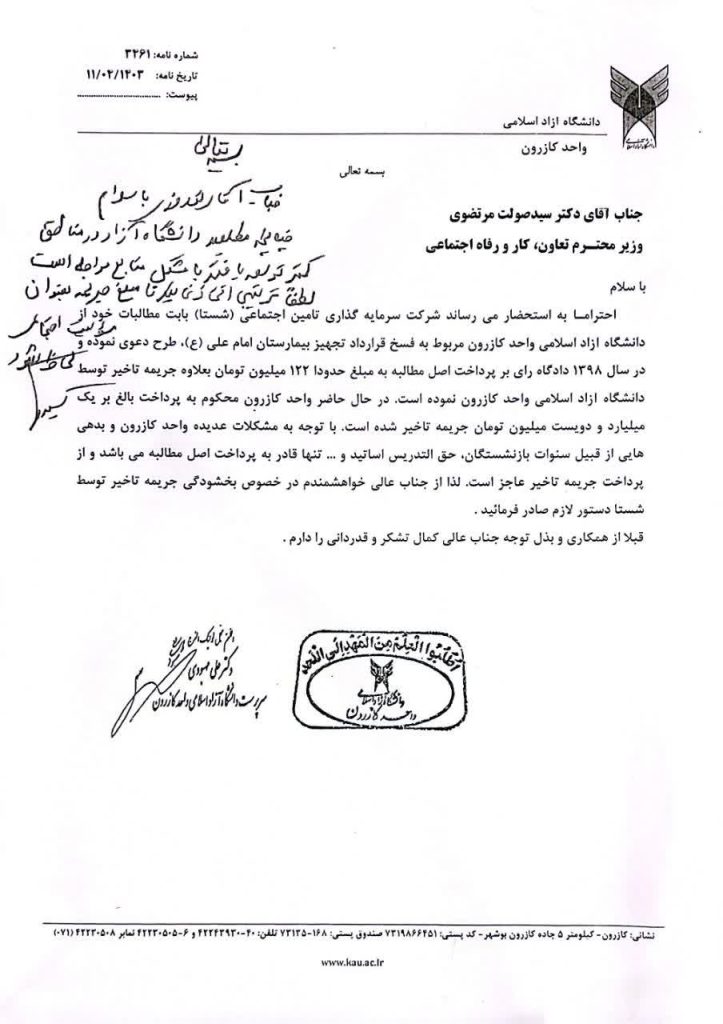 شماره نامه: ۳۲۶۱
تاریخ نامه: ۱۱/۰۲/۱۴۰۳
پیوست: ......................
دانشگاه ازاد اسلامی
واحد کازرون
بسمه تعالی
جناب آقای
با سلام
دانشگاه آزاد در مناطق
کمتر توسعه یافته با مشکل منابع مواجه است
لطفا ترتیبی
بسمه تعالی
جناب آقای دکتر سیدصولت مرتضوی
وزیر محترم تعاون، کار و رفاه اجتماعی
با سلام
احتراما به استحضار می رساند شرکت سرمایه گذاری تامین اجتماعی (شستا) بابت مطالبات خود از
دانشگاه ازاد اسلامی واحد کازرون مربوط به فسخ قرارداد تجهیز بیمارستان امام علی (ع)، طرح دعوی نموده و
در سال ۱۳۹۸ دادگاه رای بر پرداخت اصل مطالبه به مبلغ حدودا ۱۲۲ میلیون تومان بعلاوه جریمه تاخیر توسط
دانشگاه ازاد اسلامی واحد کازرون نموده است. در حال حاضر واحد کازرون محکوم به پرداخت بالغ بر یک
میلیارد و دویست میلیون تومان جریمه تاخیر شده است. با توجه به مشکلات عدیده واحد کازرون و بدهی
هایی از قبیل سنوات بازنشستگان، حق التدریس اساتید و ... تنها قادر به پرداخت اصل مطالبه می باشد و از
پرداخت جریمه تاخیر عاجز است. لذا از جناب عالی خواهشمندم در خصوص بخشودگی جریمه تاخیر توسط
شستا دستور لازم صادر فرمائید .
قبلا از همکاری و بذل توجه جناب عالی کمال تشکر و قدردانی را دارم .
اطلبوا العلم من المهد الی اللحد
دانشگاه آزاد اسلامی
واحد کازرون
دکتر علی بهبودی
سرپرست دانشگاه آزاد اسلامی واحد کازرون
نشانی: کازرون- کیلومتر ۵ جاده کازرون بوشهر- کد پستی: ۷۳۱۹۸۶۶۴۵۱ صندوق پستی: ۱۶۸-۷۳۱۳۵ تلفن: ۴۰-۴۲۲۴۳۹۳۰ و ۶-۴۲۲۳۰۵۰۵ نمابر ۴۲۲۳۰۵۰۸ (۰۷۱)
www.kau.ac.ir